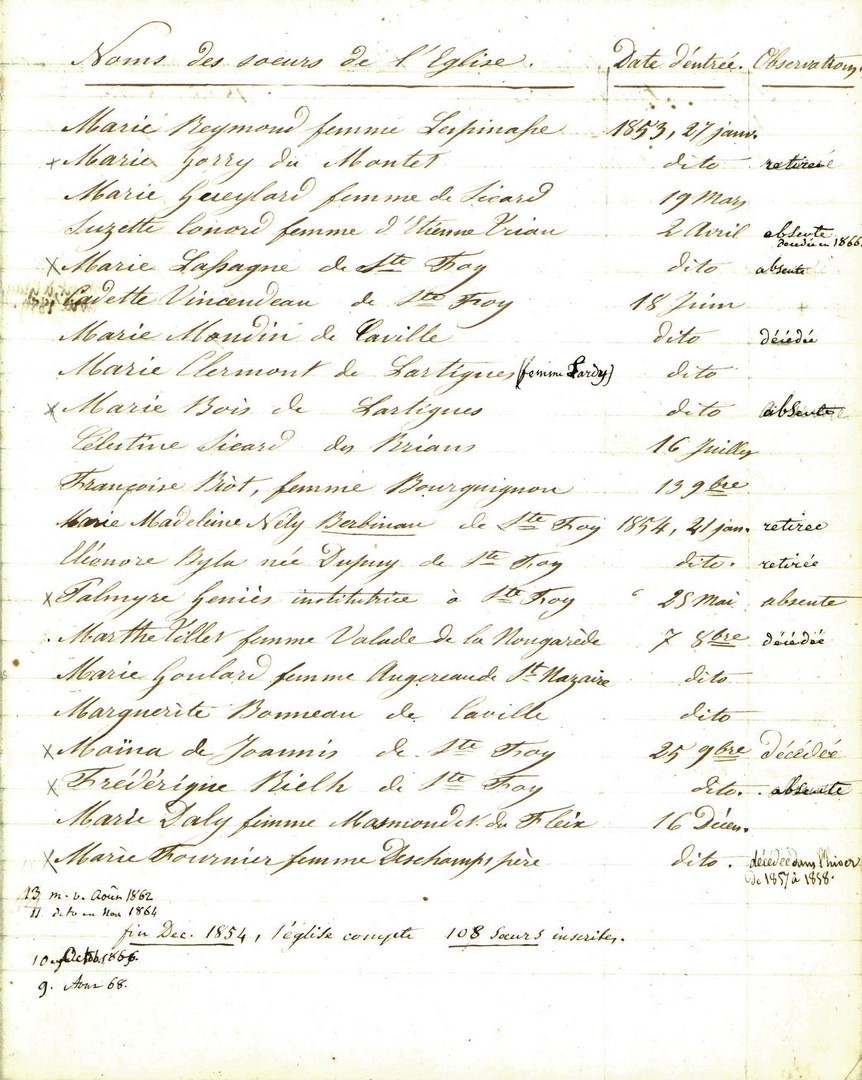 Noms des soeurs de l'Eglise. Date d'entrée. Observations.
Marie Reymond femme Lespinasse 1853, 27 janv.
x Marie Gorry du Montet dito retirée
Marie Gueylard femme de Sicard 19 Mars
Suzette Conord femme d'Etienne Briau 2 Avril absente
décédée en 1866
X Marie Lassagne de Ste Foy dito absente
Cadette Vincendeau de Ste Foy 18 Juin
Marie Mondin de Caville dito décédée
Marie Clermont de Lartigues (femme Lardy) dito
x Marie Bois de Lartigues dito absente
Célestine Sicard des Brians 16 Juillet
Françoise Biòt, femme Bourguignon 13 9bre
Marie Madeleine Nély Berbineau de Ste Foy 1854, 21 jan. retirée
Eléonore Byla née Dupuy de Ste Foy dito. retirée
x Palmyre Geniès institutrice à Ste Foy 25 Mai absente
Marthe Villet femme Valade de la Nougarède 7 8bre décédée
Marie Goulard femme Augereau de St Nazaire dito
Marguerite Bonneau de Caville dito
X Maïna de Joannis de Ste Foy 25 9bre Décédée
x Frédérique Rielh de Ste Foy dito. absente
Marie Daly femme du Fleix 16 Décem.
X Marie Fournier femme Deschamps père dito. décédée dans l'hiver
de 1857 à 1858.
13 Août 1862
11 dito en Nov 1864
fin Dec. 1854, l'église compte 108 Soeurs inscrites.
10
9. 68.